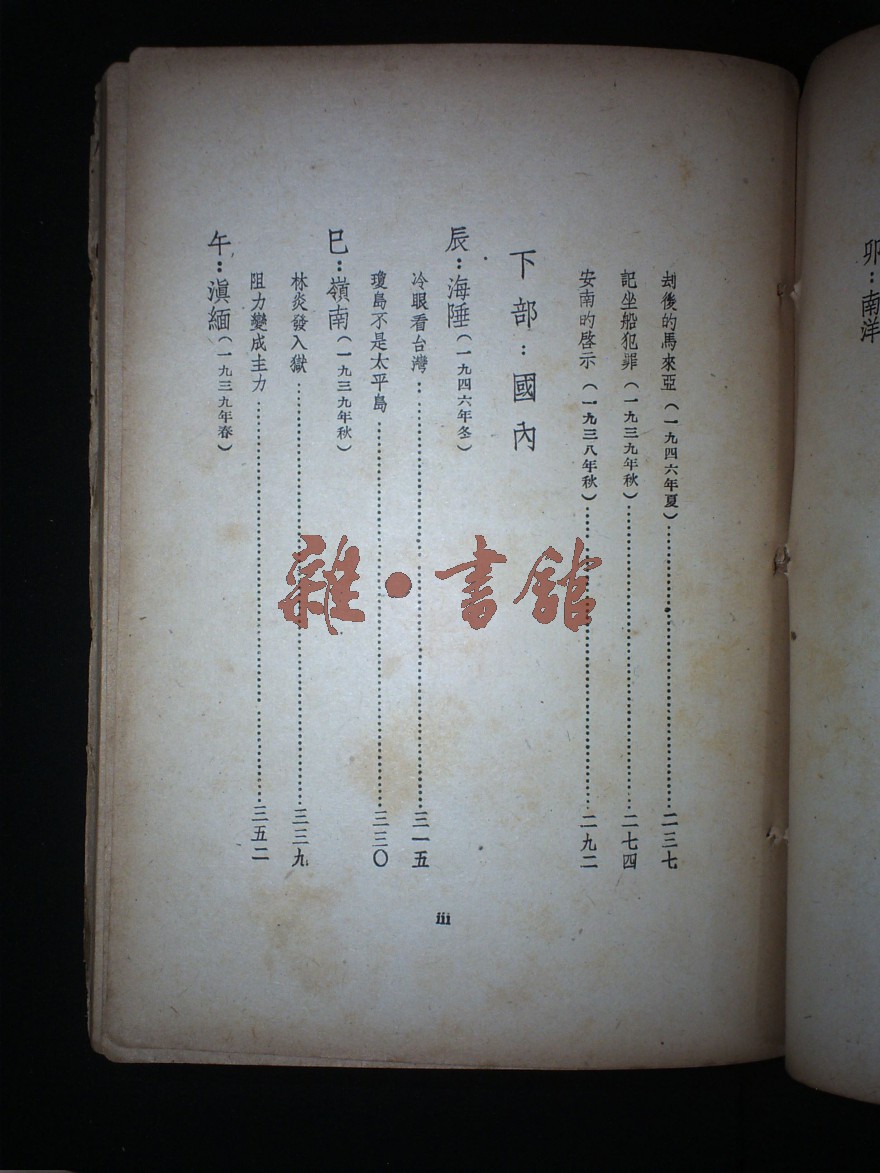 卯：南洋
刦後的馬來亞（一九四六年夏）……二三七
記坐船犯罪（一九三九年秋）……二七四
安南的啓示（一九三八年秋）……二九二
下部：國內
辰：海陲（一九四六年冬）
冷眼看台灣……三一五
瓊島不是太平島……三三〇
巳：嶺南（一九三九年秋）
林炎發入獄……三三九
阻力變成主力……三五二
午：滇緬（一九三九年春）
iii
雜·書館